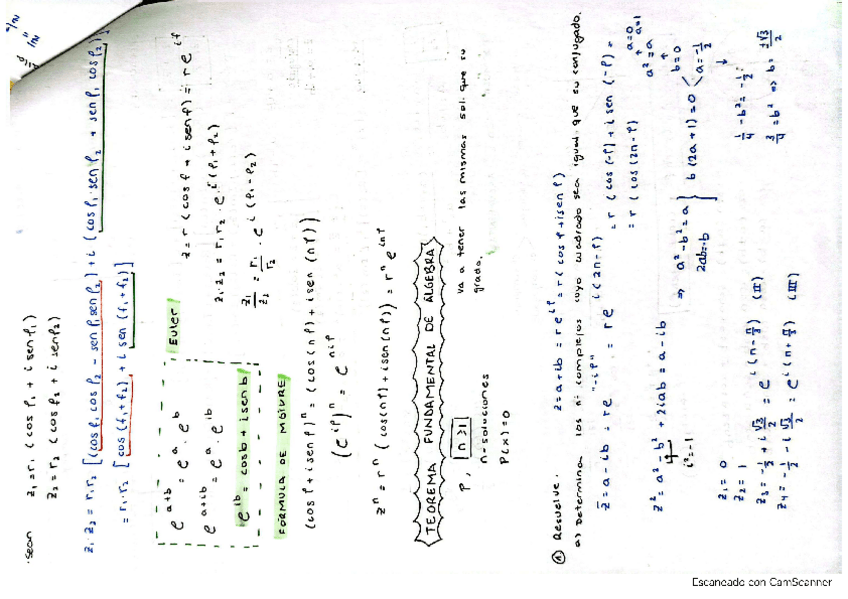 ·Sean z₁=r₁ (cos φ₁ + i sen φ₁)
z₂=r₂ (cos φ₂ + i sen φ₂)
z₁·z₂ = r₁r₂ [(cos φ₁ cos φ₂ - sen φ₁ sen φ₂) + i (cos φ₁ · sen φ₂ + sen φ₁ cos φ₂)]
= r₁·r₂ [cos (φ₁+φ₂) + i sen (φ₁+φ₂)]
Euler
e^(a+b) = e^a · e^b
e^(a+ib) = e^a · e^(ib)
e^(ib) = cos b + i sen b
z=r (cos φ + i sen φ) = r e^(iφ)
z₁·z₂ = r₁r₂ · e^(i(φ₁+φ₂))
z₁/z₂ = r₁/r₂ · e^(i(φ₁-φ₂))
FÓRMULA DE MOIVRE
(cos φ + i sen φ)ⁿ = (cos (nφ) + i sen (nφ))
(e^(iφ))ⁿ = e^(niφ)
zⁿ = rⁿ (cos(nφ) + i sen(nφ)) = rⁿ e^(inφ)
TEOREMA FUNDAMENTAL DE ÁLGEBRA
P, n≥1 va a tener las mismas sol. que su
n-soluciones grado.
P(x)=0
① Resuelve.
a) Determina los nº complejos cuyo cuadrado sea igual que su conjugado.
z=a+ib = re^(iφ) = r(cos φ+isenφ)
z̄=a-ib = re^("-iφ") = re^(i(2π-φ)) = r (cos (-φ) + i sen (-φ) =
= r (cos (2π-φ)
z² = a² - b² + 2iab = a - ib
i²=-1
⇒ a²-b²=a
2ab=-b } b(2a+1)=0
b=0
a=-1/2
a²=a
a=0
a=1
1/4 - b² = -1/2
3/4 = b² ⇒ b= ±√3/2
z₁=0
z₂=1
z₃=-1/2 + i √3/2 = e^(i(π-π/3)) (II)
z₄=-1/2 - i √3/2 = e^(i(π+π/3)) (III)
Escaneado con CamScanner